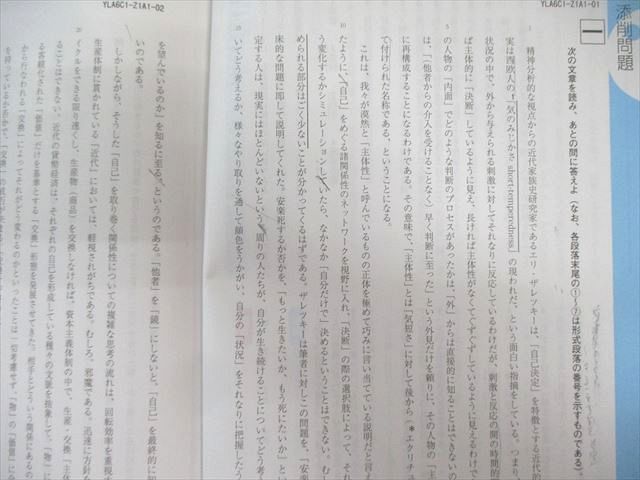 YLA6C1-Z1A1-02
YLA6C1-Z1A1-01
添削問題
一
次の文章を読み、あとの問に答えよ（なお、各段落末尾の①～⑦は形式段落の番号を示すものである）。
1
精神分析的な視点からの近代家族史研究家であるエリ・ザレツキーは、「自己決定」を特徴とする近代的
実は西欧人の「気のみじかさ short-temperedness」の現われだ、という面白い指摘をしている。つまり、
状況の中で、外から与えられる刺激に対してそれなりに反応しているわけだが、刺激と反応の間の時間的
ば主体的に「決断」しているように見え、長ければ主体性がなくてぐずぐずしているように見えるわけで
5
の人物の「内面」でどのような判断のプロセスがあったかは、「外」からは直接的に知ることはできないの
は、「（他者からの介入を受けることなく）早く判断に至った」という外見だけを頼りに、その人物の「主
に再構成することになるわけである。その意味で、「主体性」とは「気短さ」に対して後から（＊エクリチュ
て付けられた名称である、ということになる。
これは、我々が漠然と「主体性」と呼んでいるものの正体を極めて巧みに言い当てている説明だと言え
10
たように、「自己」をめぐる諸関係性のネットワークを視野に入れ、「決断」の際の選択肢によって、それ
う変化するかシミュレーションしていたら、なかなか「自分だけで」決めるということはできない。むし
められる部分はごく少ないことが分かってくるはずである。ザレツキーは筆者に対しこの問題を、「安楽
床的な問題に即して説明してくれた。安楽死するか否かを、「もっと生きたいか、もう死にたいか」とい
定する人は、現実にはほとんどいないという。周りの人たちが、自分が生き続けることについてどう考
15
いてどう考えるか、様々なやり取りを通して顔色をうかがい、自分の「状況」をそれなりに把握したう
を望んでいるのか」を知るに至る、というのである。「他者」を「鏡」にしないと、「自己」を最終的に知
いのである。
しかしながら、そうした「自己」を取り巻く関係性についての複雑な思考の流れは、回転効率を重視す
生産体制に貫かれている「近代」においては、軽視されがちである。むしろ、邪魔である。迅速に方針を
20
イクルをできる限り速くし、生産物（商品）を交換しなければ、資本主義体制の中で、生産・交換「主体
ることはできない。近代の貨幣経済は、それぞれの自己を形成している種々の文脈を捨象して、「物」に
る客観化された「価値」だけを基準とする「交換」形態を発展させてきた。相手とどういう関係にあるの
から行なわれる「交換」によってそれがどう変わるのかといったことは一切考慮せず、「物」の「価値」に
を持っているか否かで、「交換」の成否が